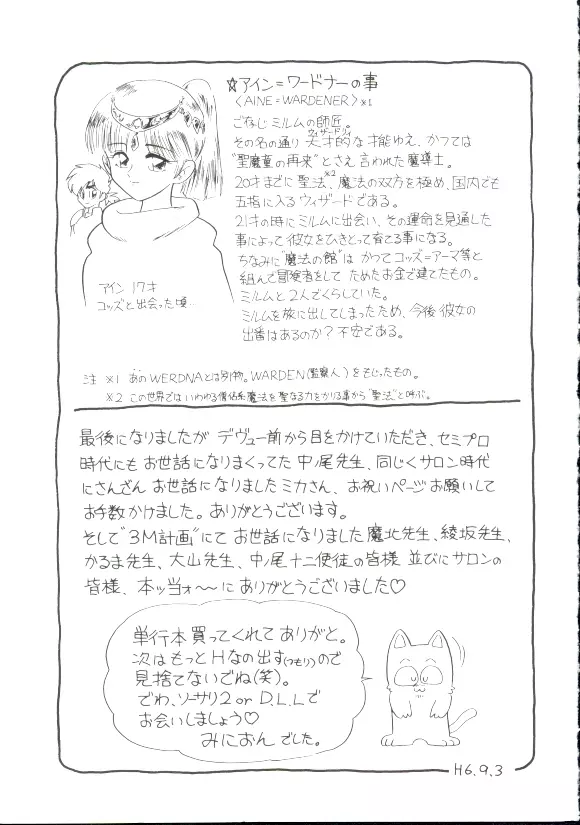 ☆アイン=ワードナーの事
〈AINE=WARDENER〉※1
ごなじ ミルムの師匠。
その名の通り 天才的な才能ゆえ、かつては
"聖魔童の再来"とさえ言われた魔導士。
20才までに聖法※2、魔法の双方を極め、国内でも
五指に入るウィザードである。
21才の時にミルムに出会い、その運命を見通した
事によって彼女をひきとって育てる事になる。
ちなみに"魔法の館"は かつてコッズ=アーマ等と
組んで冒険者をして ためたお金で建てたもの。
ミルムと2人でくらしていた。
ミルムを旅に出してしまったため、今後彼女の
出番はあるのか?不安である。
アイン 17才
コッズと出会った頃…
注 ※1 あのWERDNAとは別物。WARDEN(監察人)をもじったもの。
※2 この世界では いわゆる僧侶系魔法を聖なる力をかりる事から"聖法"と呼ぶ。
最後になりましたが デヴュー前から目をかけていただき、セミプロ
時代にも お世話になりまくってた 中ノ尾先生、同じくサロン時代
にさんざん お世話になりましたミカさん、お祝いページお願いして
お手数かけました。ありがとうございます。
そして"3M計画"にて お世話になりました魔北先生、綾坂先生、
かるま先生、大山先生、中ノ尾十二使徒の皆様 並びにサロンの
皆様、本ッ当ォ〜〜に ありがとうございました♡
単行本買ってくれて ありがと。
次はもっとHなの出す(つもり)ので
見捨てないでね(笑)。
でわ、ソーサリ2 or D.L.Lで
お会いしましょう♡
みにおん でした。
H6.9.3